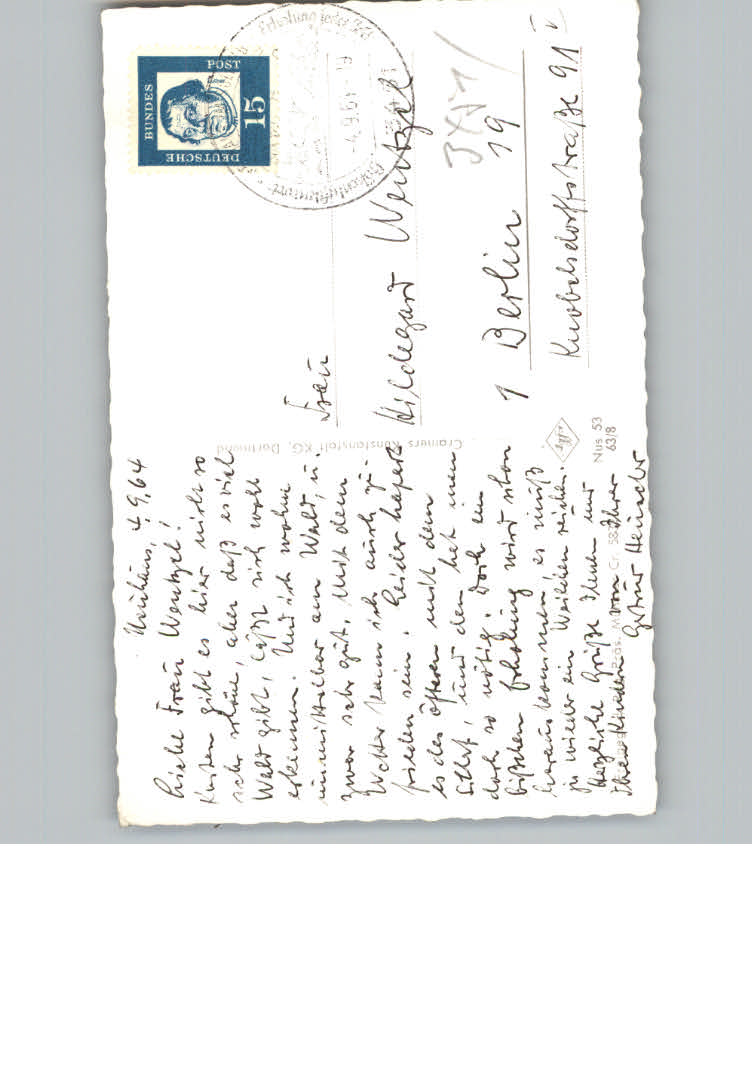 Neuhaus, 4.9.64
Liebe Frau Wentzel!
Kosten gibt es hier nicht so
sehr schöne, aber daß es viel
Wald gibt, läßt sich wohl
erkennen. Und ich wohne
unmittelbar am Wald, u.
zwar sehr gut. Mit dem
Wetter kann ich auch zu-
frieden sein. Leider hapert
es des öfteren mit dem
Schlaf, und den hat man
doch so nötig. Doch ein
bißchen Erholung wird schon
herauskommen, es muß
ja wieder ein Weilchen reichen.
Herzliche Grüße Ihnen und
Ihren Kindern von Ihrer
Gertrud
Cramers Kunstanstalt KG, Dortmund
Nus 53
63/8
DEUTSCHE
BUNDES
POST
15
Erholung jeder Zeit
-4.9.64-19
Höhenluftkurort
Frau
Hildegard Wentzel
1 Berlin 19
Knobelsdorffstraße 91 I